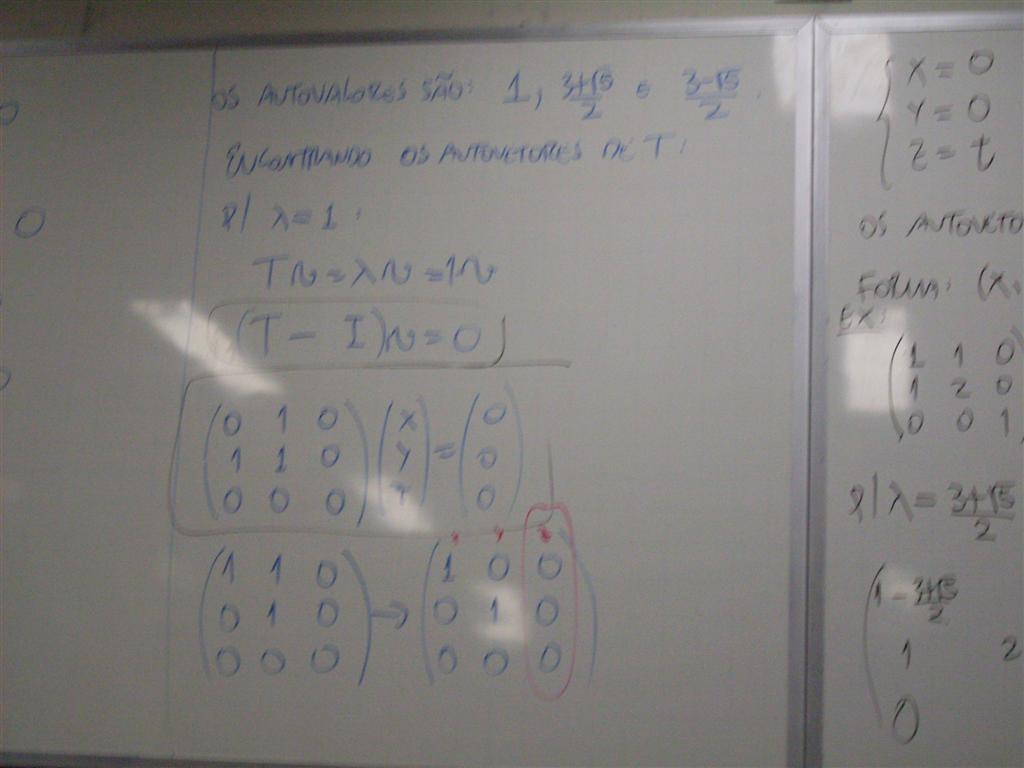 0
0
OS AUTOVALORES SÃO: 1, 3+√5/2 e 3-√5/2.
ENCONTRANDO OS AUTOVETORES DE T:
P/ λ=1:
Tv=λv=1v
(T - I)v=0
(0 1 0) (x) = (0)
(1 1 0) (y) (0)
(0 0 0) (0)
(1 1 0) → (1 0 0)
(0 1 0) (0 1 0)
(0 0 0) (0 0 0)
{ X = 0
Y = 0
Z = t
OS AUTOVETO
FORMA: (X,
EX:
(1 1 0
1 2 0
0 0 1
P/ λ = 3+√5/2
(1 - 3+√5/2
1 2
0